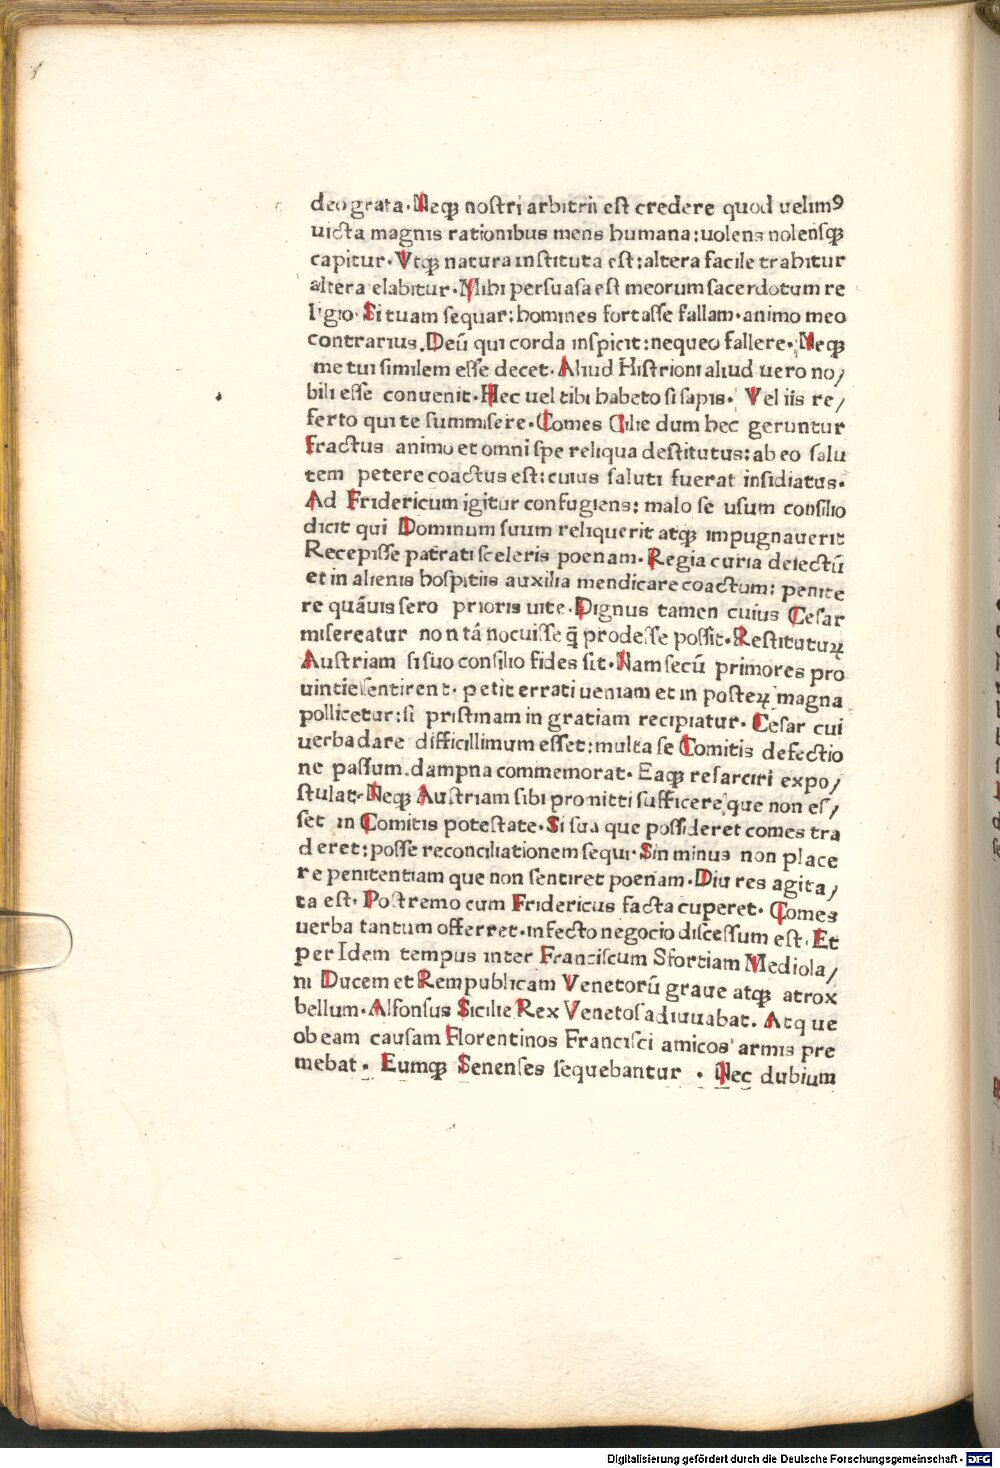 deo grata. Neqꝫ nostri arbitrii est credere quod uelimꝰ
uicta magnis rationibus mens humana: uolens nolensqꝫ
capitur. Vtqꝫ natura instituta est: altera facile trahitur
altera elabitur. Mihi persuasa est meorum sacerdotum re
ligio. Si tuam sequar: homines fortasse fallam. animo meo
contrarius. Deū qui corda inspicit: nequeo fallere. Neqꝫ
me tui similem esse decet. Aliud Histrioni aliud uero no/
bili esse conuenit. Hec uel tibi habeto si sapis. Vel iis re/
ferto qui te summisere. Comes Cilie dum hec geruntur
fractus animo et omni spe reliqua destitutus: ab eo salu
tem petere coactus est: cuius saluti fuerat insidiatus.
Ad Fridericum igitur confugiens: malo se usum consilio
dicit qui Dominum suum reliquerit atqꝫ impugnauerit
Recepisse patrati sceleris poenam. Regia curia deiectū
et in alienis hospitiis auxilia mendicare coactum: penite
re quāuis sero prioris uite. Dignus tamen cuius Cesar
misereatur non tā nocuisse q̄ prodesse possit. Restituturꝝ
Austriam si suo consilio fides sit. Nam secū primores pro
uintie sentirent. petit errati ueniam et in posteꝝ magna
pollicetur: si pristinam in gratiam recipiatur. Cesar cui
uerba dare difficillimum esset: multa se Comitis defectio
ne passum. dampna commemorat. Eaqꝫ resarciri expo/
stulat. Neqꝫ Austriam sibi promitti sufficere que non es/
set in Comitis potestate. Si sua que possideret comes tra
deret: posse reconciliationem sequi. Sin minus non place
re penitentiam que non sentiret poenam. Diu res agita/
ta est. Postremo cum Fridericus facta cuperet. Comes
uerba tantum offerret. infecto negocio discessum est. Et
per Idem tempus inter Franciscum Sfortiam Mediola/
ni Ducem et Rempublicam Venetorū graue atqꝫ atrox
bellum. Alfonsus Sicilie Rex Venetos adiuuabat. Atque
ob eam causam Florentinos Francisci amicos armis pre
mebat. Eumqꝫ Senenses sequebantur. Nec dubium
Digitalisierung gefördert durch die Deutsche Forschungsgemeinschaft - DFG